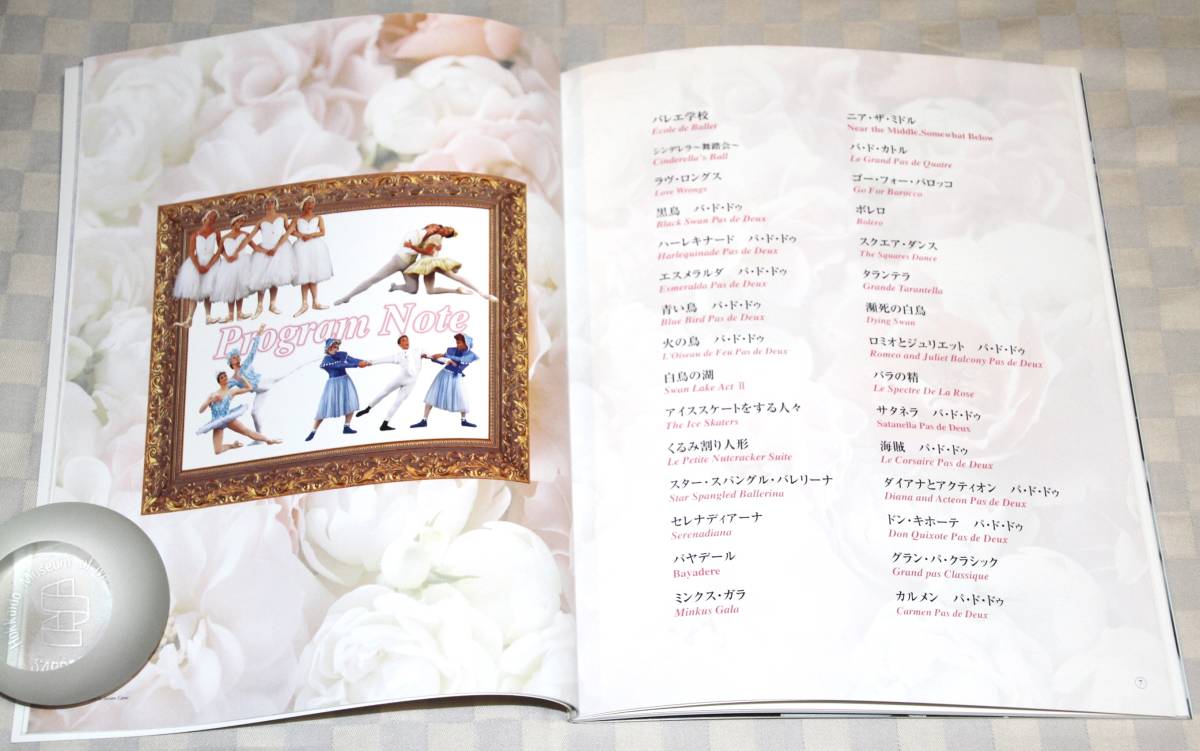 Program Note
バレエ学校
Ecole de Ballet
シンデレラ～舞踏会～
Cinderella's Ball
ラヴ・ロングス
Love Wrongs
黒鳥 パ・ド・ドゥ
Black Swan Pas de Deux
ハーレキナード パ・ド・ドゥ
Harlequinade Pas de Deux
エスメラルダ パ・ド・ドゥ
Esmeralda Pas de Deux
青い鳥 パ・ド・ドゥ
Blue Bird Pas de Deux
火の鳥 パ・ド・ドゥ
L'Oiseau de Feu Pas de Deux
白鳥の湖
Swan Lake Act II
アイススケートをする人々
The Ice Skaters
くるみ割り人形
Le Petite Nutcracker Suite
スター・スパングル・バレリーナ
Star Spangled Ballerina
セレナディアーナ
Serenadiana
バヤデール
Bayadere
ミンクス・ガラ
Minkus Gala
ニア・ザ・ミドル
Near the Middle,Somewhat Below
パ・ド・カトル
Le Grand Pas de Quatre
ゴー・フォー・バロッコ
Go For Barocco
ボレロ
Bolero
スクエア・ダンス
The Squares Dance
タランテラ
Grande Tarantella
瀕死の白鳥
Dying Swan
ロミオとジュリエット パ・ド・ドゥ
Romeo and Juliet Balcony Pas de Deux
バラの精
Le Spectre De La Rose
サタネラ パ・ド・ドゥ
Satanella Pas de Deux
海賊 パ・ド・ドゥ
Le Corsaire Pas de Deux
ダイアナとアクティオン パ・ド・ドゥ
Diana and Acteon Pas de Deux
ドン・キホーテ パ・ド・ドゥ
Don Quixote Pas de Deux
グラン・パ・クラシック
Grand pas Classique
カルメン パ・ド・ドゥ
Carmen Pas de Deux
7